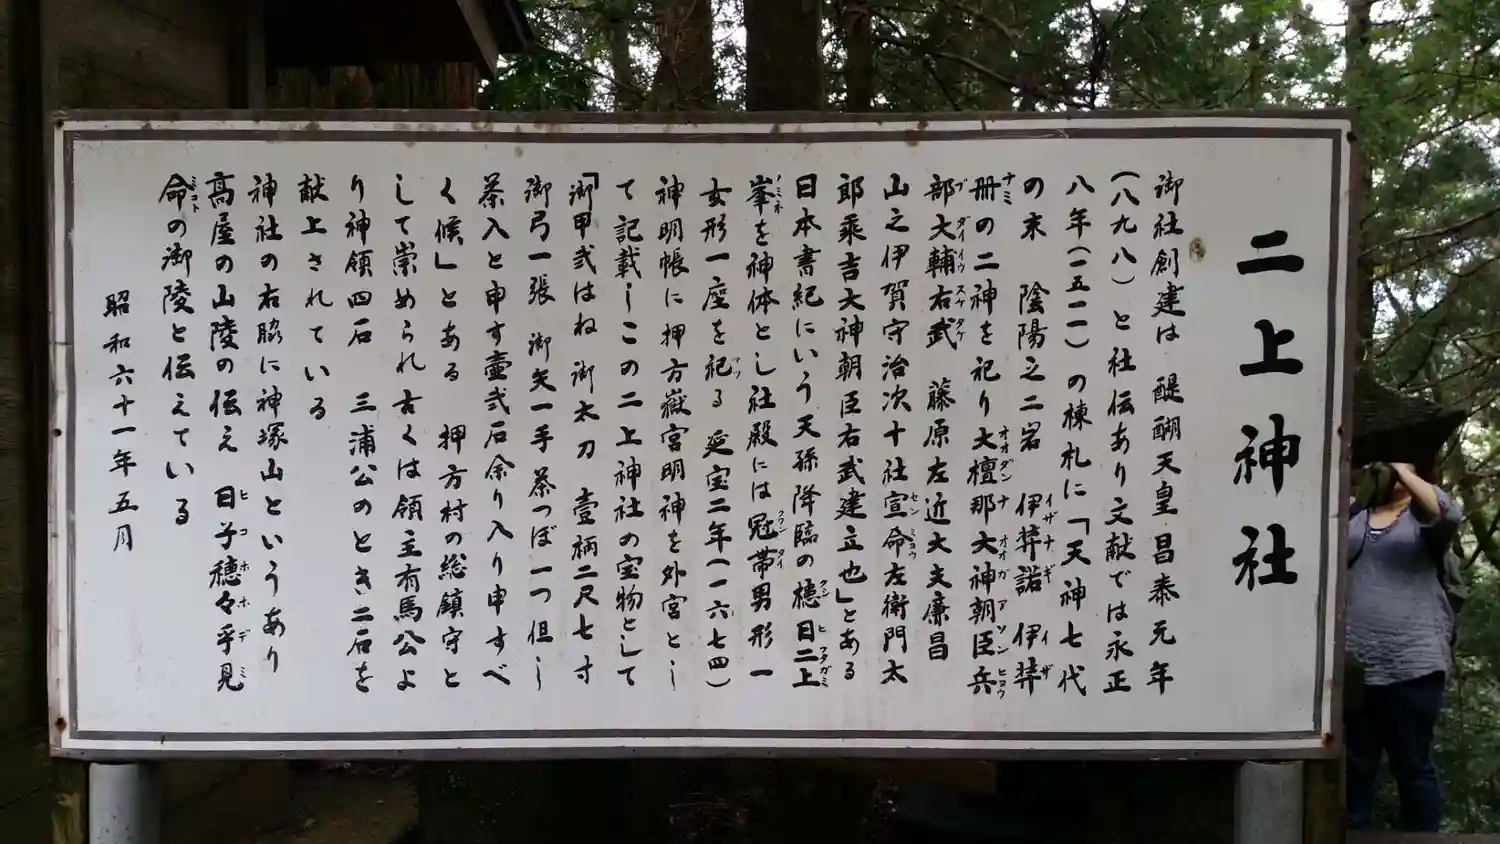 二上神社
御社創建は 醍醐天皇 昌泰元年
(八九八)と社伝あり文献では永正
八年(一五一一)の棟札に「天神七代
の末 陰陽之二岩 伊弉諾 伊弉
冊の二神を祀り大檀那大神朝臣兵
部大輔右武 藤原左近大夫廉昌
山之伊賀守治次十社宣命左衛門太
郎乘吉大神朝臣右武建立也」とある
日本書紀にいう天孫降臨の槵日二上
峯を神体とし社殿には冠帯男形一
女形一座を祀る 延宝二年(一六七四)
神明帳に押方嶽宮明神を外宮とし
て記載しこの二上神社の宝物として
「御甲弐はね 御太刀 壹柄二尺七寸
御弓一張 御矢一手 茶つぼ一つ但し
茶入と申す壷弐石余り入り申すべ
く候」とある 押方村の総鎮守と
して崇められ古くは領主有馬公よ
り神領四石 三浦公のとき二石を
献上されている
神社の右脇に神塚山というあり
高屋の山陵の伝え 日子穂々手見
命の御陵と伝えている
昭和六十一年五月